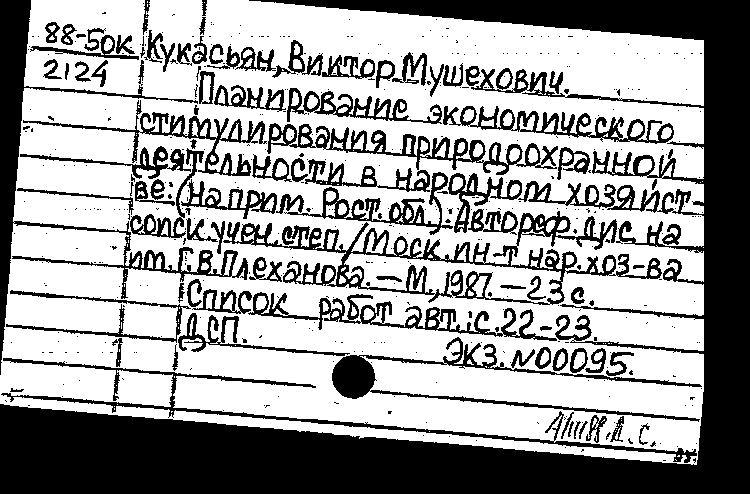 88-50к
2124
Кукасьян, Виктор Мушехович.
Планирование экономического
стимулирования природоохранной
деятельности в народном хозяйст-
ве: (на прим. Рост. обл.): Автореф. дис. на
соиск. учен. степ. / Моск. ин-т нар. хоз-ва
им. Г.В. Плеханова. — М., 1987. — 23 с.
Список работ авт.: с. 22-23.
ДСП.
Экз. N00095.